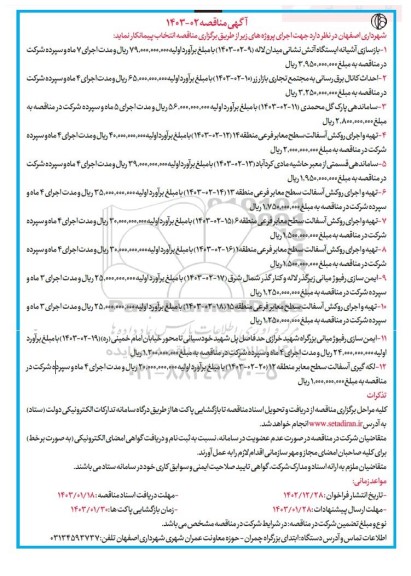 آگهی مناقصه ۰۲-۱۴۰۳
شهرداری اصفهان در نظر دارد جهت اجرای پروژه های زیر از طریق برگزاری مناقصه انتخاب پیمانکار نماید:
۱- بازسازی آشیانه ایستگاه آتش نشانی میدان لاله (۹-۰۲-۱۴۰۳) با مبلغ برآورد اولیه ۷۹،۰۰۰،۰۰۰،۰۰۰ ریال و مدت اجرای ۷ ماه و سپرده شرکت
در مناقصه به مبلغ ۳،۹۵۰،۰۰۰،۰۰۰ ریال
۲- احداث کانال برق رسانی به مجتمع تجاری بازار رز (۱۰-۰۲-۱۴۰۳) با مبلغ برآورد اولیه ۶۵،۰۰۰،۰۰۰،۰۰۰ ریال و مدت اجرای ۴ ماه و سپرده شرکت
در مناقصه به مبلغ ۳،۲۵۰،۰۰۰،۰۰۰ ریال
۳- ساماندهی پارک گل محمدی (۱۱-۰۲-۱۴۰۳) با مبلغ برآورد اولیه ۵۶،۰۰۰،۰۰۰،۰۰۰ ریال و مدت اجرای ۵ ماه و سپرده شرکت در مناقصه به
مبلغ ۲،۸۰۰،۰۰۰،۰۰۰ ریال
۴- تهیه و اجرای روکش آسفالت سطح معابر فرعی منطقه ۱۴ (۱۲-۰۲-۱۴۰۳) با مبلغ برآورد اولیه ۴۰،۰۰۰،۰۰۰،۰۰۰ ریال و مدت اجرای ۴ ماه و سپرده
شرکت در مناقصه به مبلغ ۲،۰۰۰،۰۰۰،۰۰۰ ریال
۵- ساماندهی قسمتی از معبر حاشیه مادی کردآباد (۱۳-۰۲-۱۴۰۳) با مبلغ برآورد اولیه ۳۹،۰۰۰،۰۰۰،۰۰۰ ریال و مدت اجرای ۴ ماه و سپرده شرکت
در مناقصه به مبلغ ۱،۹۵۰،۰۰۰،۰۰۰ ریال
۶- تهیه و اجرای روکش آسفالت سطح معابر فرعی منطقه ۱۳ (۱۴-۰۲-۱۴۰۳) با مبلغ برآورد اولیه ۳۵،۰۰۰،۰۰۰،۰۰۰ ریال و مدت اجرای ۴ ماه و
سپرده شرکت در مناقصه به مبلغ ۱،۷۵۰،۰۰۰،۰۰۰ ریال
۷- تهیه و اجرای روکش آسفالت سطح معابر فرعی منطقه ۶ (۱۵-۰۲-۱۴۰۳) با مبلغ برآورد اولیه ۳۰،۰۰۰،۰۰۰،۰۰۰ ریال و مدت اجرای ۴ ماه و
سپرده شرکت در مناقصه به مبلغ ۱،۵۰۰،۰۰۰،۰۰۰ ریال
۸- تهیه و اجرای روکش آسفالت سطح معابر فرعی منطقه ۱ (۱۶-۰۲-۱۴۰۳) با مبلغ برآورد اولیه ۳۰،۰۰۰،۰۰۰،۰۰۰ ریال و مدت اجرای ۴ ماه و سپرده
شرکت در مناقصه به مبلغ ۱،۵۰۰،۰۰۰،۰۰۰ ریال
۹- ایمن سازی رفیوژ میانی زیرگذر لاله و کنار گذر شمال شرق (۱۷-۰۲-۱۴۰۳) با مبلغ برآورد اولیه ۲۵،۰۰۰،۰۰۰،۰۰۰ ریال و مدت اجرای ۳ ماه و
سپرده شرکت در مناقصه به مبلغ ۱،۲۵۰،۰۰۰،۰۰۰ ریال
۱۰- تهیه و اجرای روکش آسفالت سطح معابر فرعی منطقه ۱۵ (۱۸-۰۲-۱۴۰۳) با مبلغ برآورد اولیه ۲۵،۰۰۰،۰۰۰،۰۰۰ ریال و مدت اجرای ۳ ماه و
سپرده شرکت در مناقصه به مبلغ ۱،۲۵۰،۰۰۰،۰۰۰ ریال
۱۱- ایمن سازی رفیوژ میانی بزرگراه شهید خرازی حد فاصل پل شهید خودسیانی تا محور خیابان امام خمینی (ره) (۱۹-۰۲-۱۴۰۳) با مبلغ برآورد
اولیه ۲۴،۰۰۰،۰۰۰،۰۰۰ ریال و مدت اجرای ۴ ماه و سپرده شرکت در مناقصه به مبلغ ۱،۲۰۰،۰۰۰،۰۰۰ ریال
۱۲- لکه گیری آسفالت سطح معابر منطقه ۱۲ (۲۰-۰۲-۱۴۰۳) با مبلغ برآورد اولیه ۲۰،۰۰۰،۰۰۰،۰۰۰ ریال و مدت اجرای ۴ ماه و سپرده شرکت در
مناقصه به مبلغ ۱،۰۰۰،۰۰۰،۰۰۰ ریال
۰۲۱-۸۸۳۴۹۶۷۰-۵
تذکرات
کلیه مراحل برگزاری مناقصه از دریافت و تحویل اسناد مناقصه تا بازگشایی پاکت ها از طریق درگاه سامانه تدارکات الکترونیکی دولت (ستاد)
به آدرس www.setadiran.ir انجام خواهد شد.
متقاضیان شرکت در مناقصه در صورت عدم عضویت در سامانه، نسبت به ثبت نام و دریافت گواهی امضای الکترونیکی (به صورت برخط)
برای کلیه صاحبان امضای مجاز و مهر سازمانی اقدام لازم را به عمل آورند.
متقاضیان ملزم به ارائه اسناد و مدارک شرکت، گواهی تایید صلاحیت ایمنی و سوابق کاری خود در سامانه ستاد می باشند.
مواعد زمانی:
- تاریخ انتشار فراخوان: ۱۴۰۲/۱۲/۲۸ - مهلت دریافت اسناد مناقصه: ۱۴۰۳/۰۱/۱۸
- مهلت ارسال پیشنهادات: ۱۴۰۳/۰۱/۲۸ - زمان بازگشایی پاکت ها: ۱۴۰۳/۰۱/۳۰
نوع و مبلغ تضمین شرکت در مناقصه: در شرایط شرکت در مناقصه مشخص می باشد.
اطلاعات تماس و آدرس دستگاه: ابتدای بزرگراه چمران - حوزه معاونت عمران شهری شهرداری اصفهان تلفن: ۰۳۱۳۴۵۹۳۷۳۷